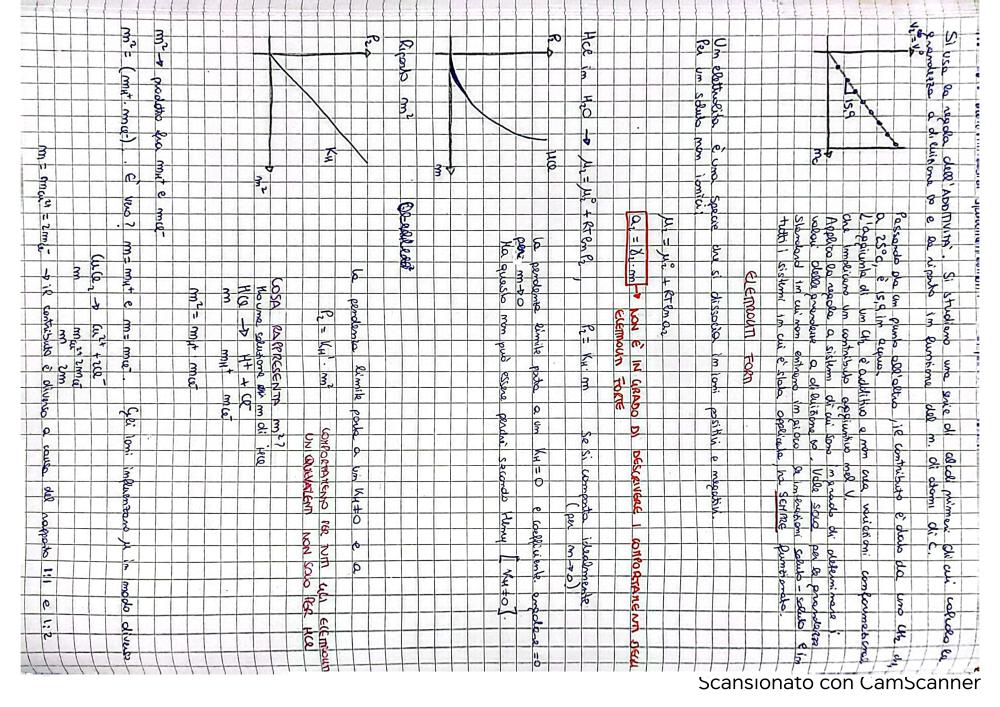 Si usa la regola dell'ADDITIVITÀ. Si studiano una serie di alcoli primari di cui calcolo la
grandezza a diluizione ∞ e la riporto in funzione del n. di atomi di C.
V₂°=V₂^∞
15,9
nc
Passando da un punto all'altro, il contributo è dato da uno CH₂ di,
a 25°C, è 15,9 in acqua.
L'aggiunta di un CH₂ è additivo e non crea variazioni conformazionali
che implicano un contributo aggiuntivo nel V.
Applico la regola a sistemi di cui sono in grado di determinare i
valori delle grandezze a diluizione ∞. Vale solo per le grandezze
standard in cui non entrano in gioco le interazioni soluto-soluto e in
tutti i sistemi in cui è stata applicata, ha SEMPRE funzionato.
ELETTROLITI FORTI
Un elettrolita è una specie che si dissocia in ioni positivi e negativi.
Per un soluto non ionici:
μ₂ = μ₂° + RT ln a₂
a₂ = γ₂·m → NON È IN GRADO DI DESCRIVERE I COMPORTAMENTI DEGLI
ELETTROLITI FORTE
HCl in H₂O → μ₂ = μ₂° + RT ln P₂, P₂ = KH·m Se si comporta idealmente
(per m→0)
P₂
HCl
m
La pendenza limite porta a un KH=0 e coefficiente angolare =0
per m→0
Ma questo non può essere perché secondo Henry [KH≠0].
Riporto m²
P₂
KH
m²
La pendenza limite porta a un KH≠0 e a
P₂ = KH'·m² COMPORTAMENTO PER TUTTI GLI ELETTROLITI
UNIVALENTI NON SOLO PER HCl
COSA RAPPRESENTA m²?
Ho una soluzione m di HCl
HCl → H⁺ + Cl⁻
m mH⁺ mCl⁻
m² = mH⁺ mCl⁻
m² → prodotto fra mH⁺ e mCl⁻
m² = (mH⁺·mCl⁻). È vero? m = mH⁺ e m = mCl⁻. Gli ioni influenzano μ in modo diverso
CuCl₂ → Cu²⁺ + 2Cl⁻
m mCu²⁺ 2mCl⁻
m 2m
m = mCu²⁺ = 2mCl⁻ → il contributo è diverso a causa del rapporto 1:1 e 1:2
Scansionato con CamScanner